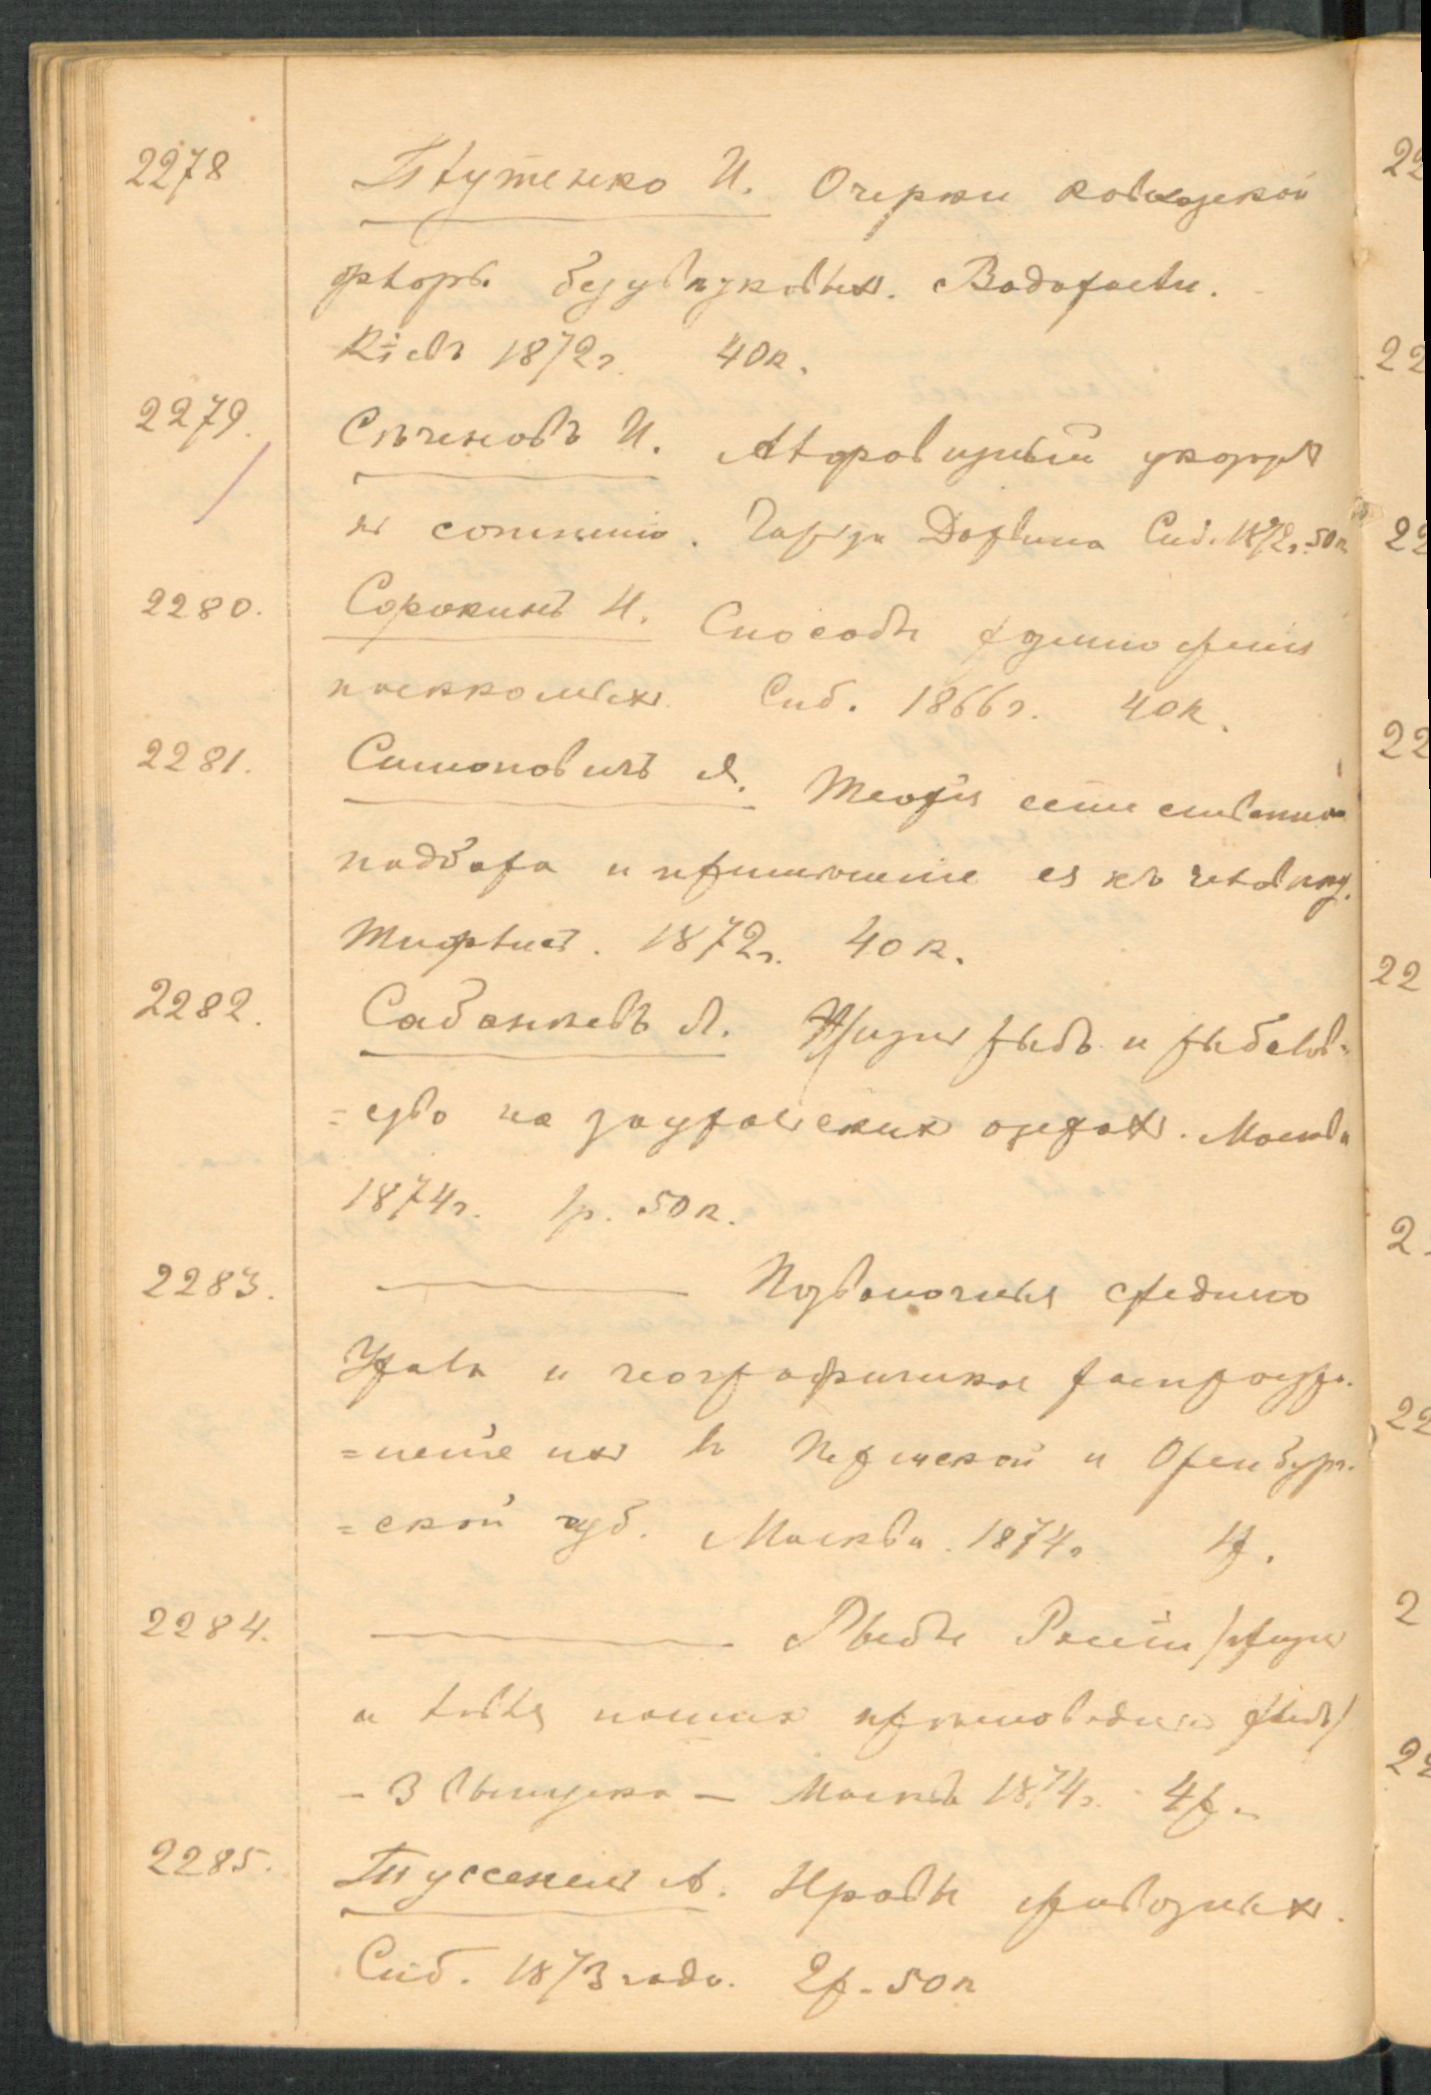 2278 Плутенко И. Очерки кавказской
флоры безцвѣтковыхъ. Водоросли.
Кіевъ 1872г. 40к.
2279. Сѣченовъ И. укоръ
къ Чарльза Дарвина Спб. 1872г. 50к
2280. Сорокинъ Н. Способы
насѣкомыхъ Спб. 1866г. 40к.
2281. Симоновичъ Я. Теорія естественнаго
подбора и примѣненіе ея къ человѣку.
Тифлисъ. 1872г. 40к.
2282. Сабанѣевъ Л. Жизнь рыбъ и рыболов-
=ство на зауральскихъ озерахъ. Москва
1874г. 1р. 50к.
2283. Позвоночныя средняго
Урала и географическое распростра-
=неніе ихъ въ Пермской и Оренбург-
=ской губ. Москва. 1874г 1р.
2284. Рыбы Россіи /жизнь
и ловля нашихъ прѣсноводныхъ рыбъ/
- 3 выпуска - Москва 1874г. 4р.
2285. Туссенель А. Нравы
Спб. 1873 года. 2р. 50к
22
22
22
22
22
2
22
2
22